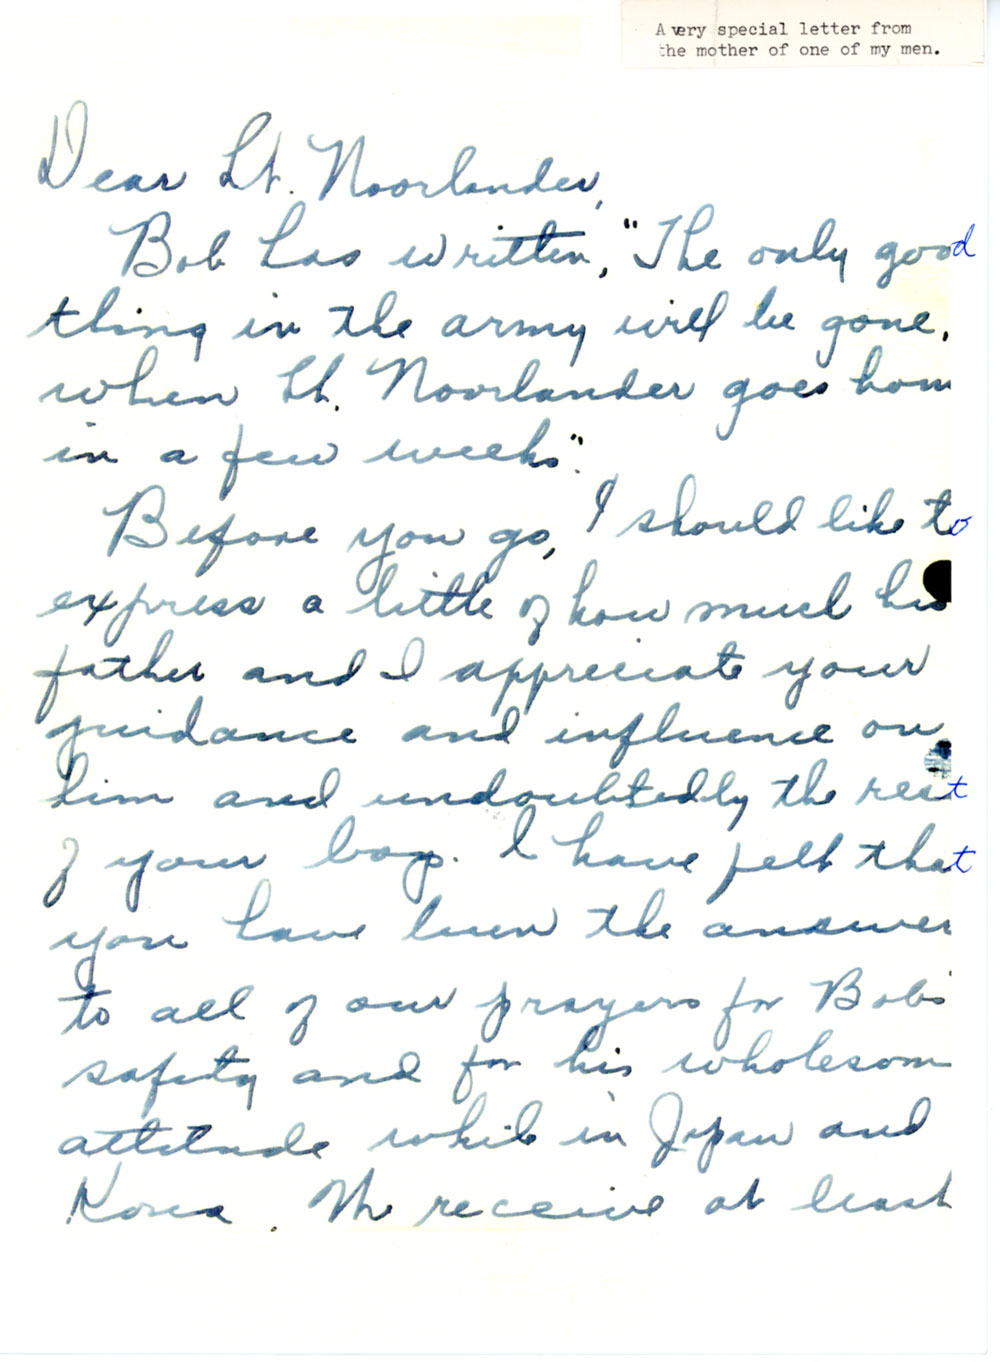 A very special letter from
the mother of one of my men.
Dear Lt. Noorlander,
Bob has written, "The only good
thing in the army will be gone.
when Lt. Noorlander goes hom
in a few weeks".
Before you go, I should like to
express a little of how much his
father and I appreciate your
guidance and influence on
him and undoubtedly the rest
of your boys. I have felt that
you have been the answer
to all of our prayers for Bob's
safety and for his wholesom
attitude while in Japan and
Korea. We receive at least